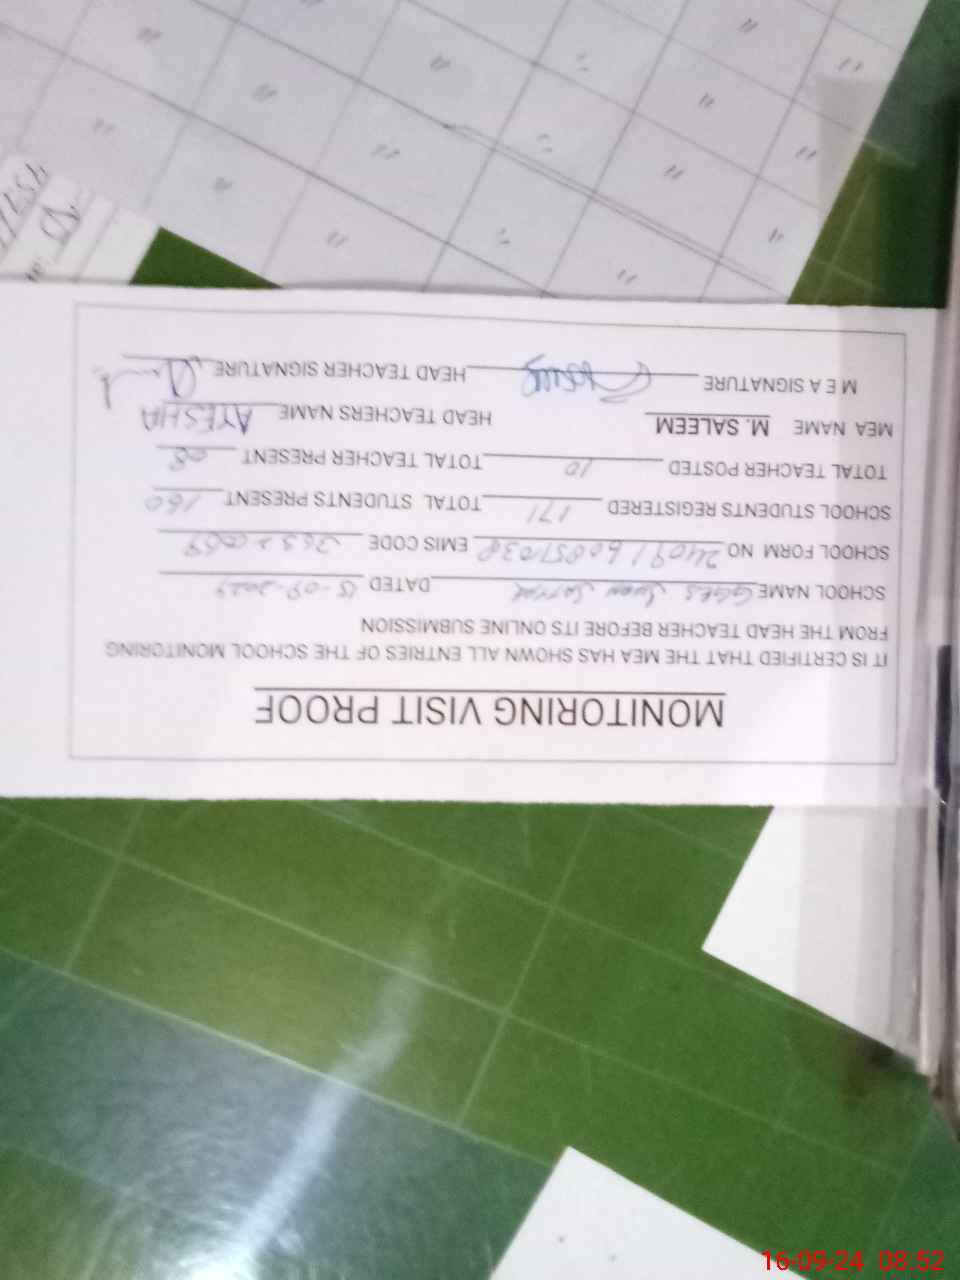 MONITORING VISIT PROOF
IT IS CERTIFIED THAT THE MEA HAS SHOWN ALL ENTRIES OF THE SCHOOL MONITORING
FROM THE HEAD TEACHER BEFORE ITS ONLINE SUBMISSION
SCHOOL NAME GGES DATED
SCHOOL FORM NO EMIS CODE
SCHOOL STUDENTS REGISTERED 171 TOTAL STUDENTS PRESENT 160
TOTAL TEACHER POSTED 10 TOTAL TEACHER PRESENT 08
MEA NAME M. SALEEM HEAD TEACHERS NAME AYESHA
M E A SIGNATURE HEAD TEACHER SIGNATURE
16-09-24 08:52